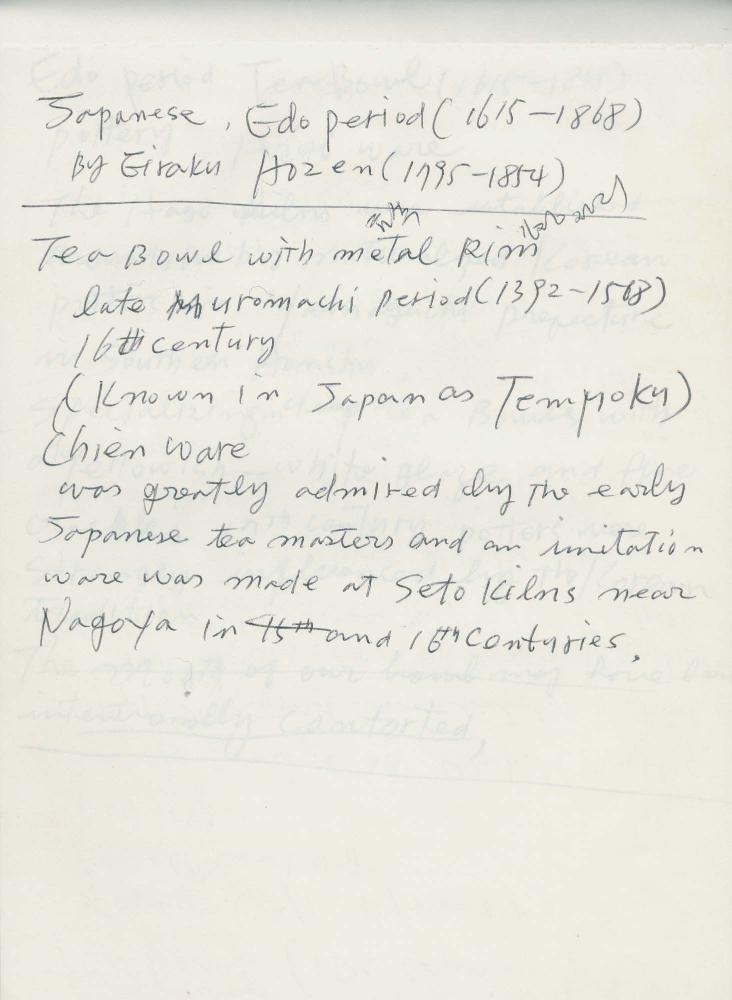 Japanese, Edo period (1615-1868)
By Eiraku Hozen (1795-1854)
Tea Bowl with metal Rim
late Muromachi period (1392-1568)
16th century
(Known in Japan as Tempoku)
Chien ware
was greatly admired by the early
Japanese tea masters and an imitation
ware was made at Seto Kilns near
Nagoya in 15th and 16th Centuries.